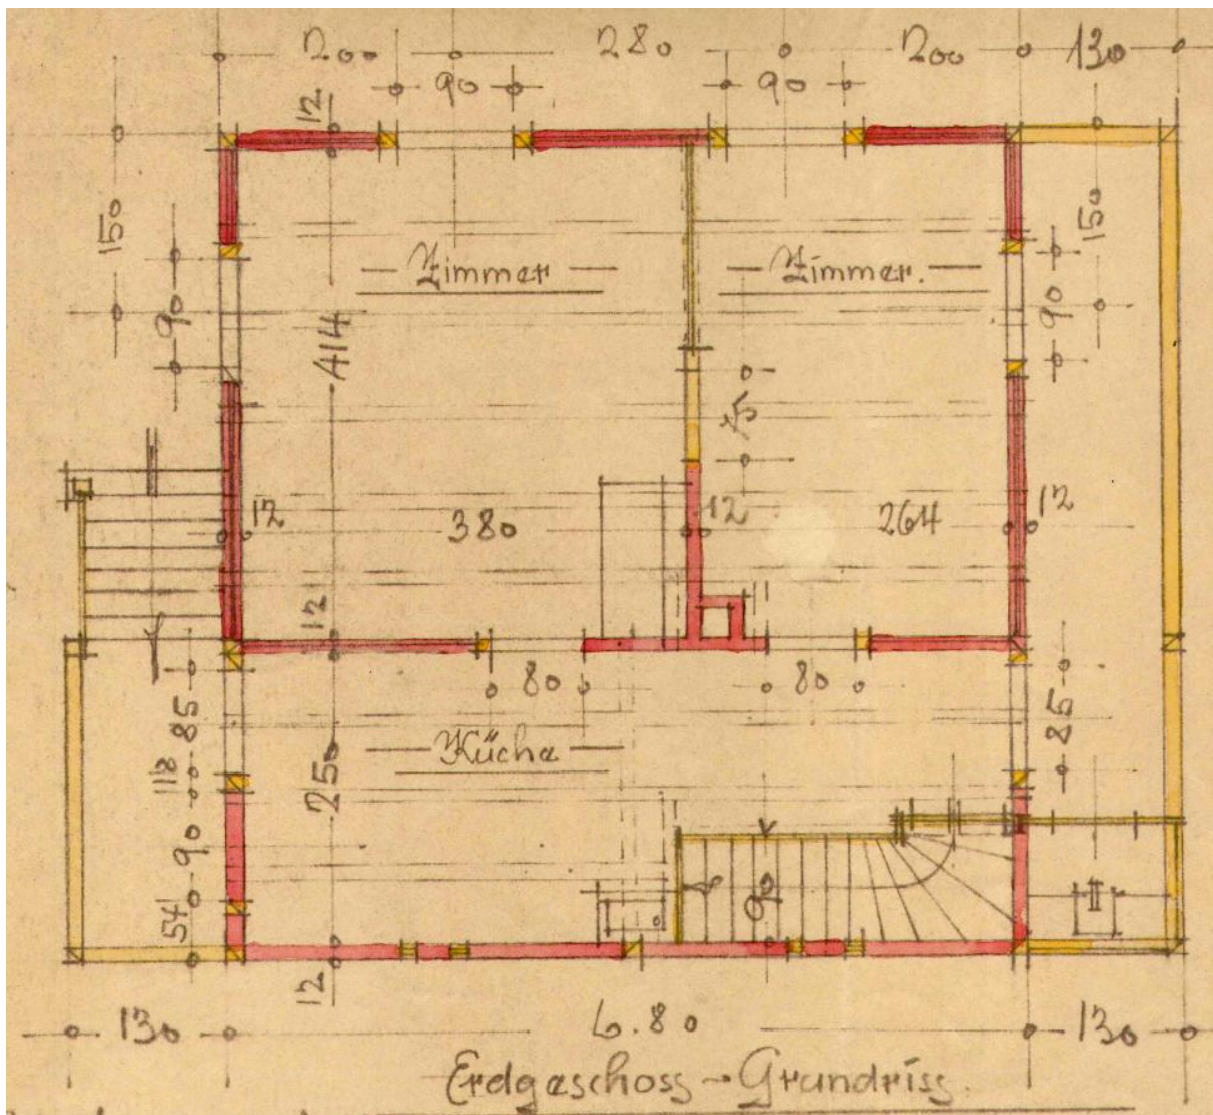 200 280 200 130
90 90
12
150 150
Zimmer Zimmer.
90 90
414
75
12 380 12 264 12
12
80 80
85 85
Küche
118 250
90 90
54
12
130 6.80 130
Erdgeschoss - Grundriss.